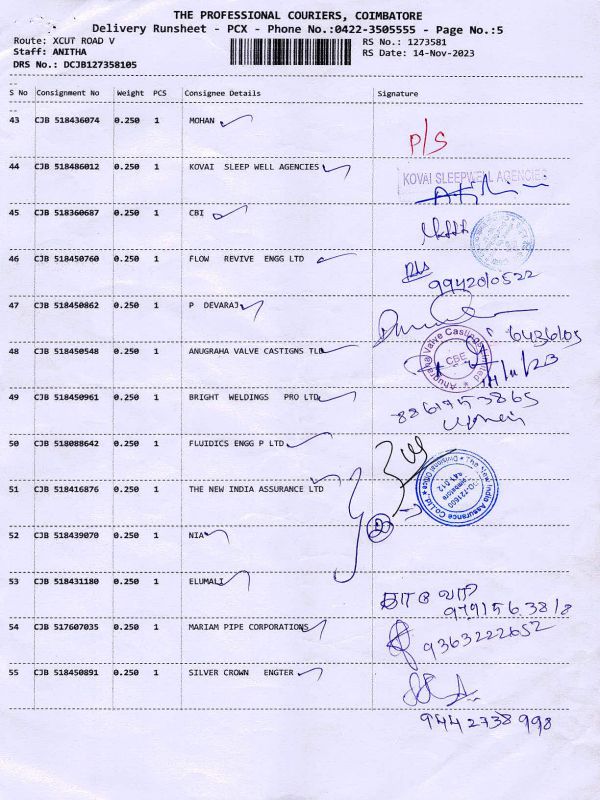 THE PROFESSIONAL COURIERS, COIMBATORE
Delivery Runsheet - PCX - Phone No.:0422-3505555 - Page No.:5
Route: XCUT ROAD V RS No.: 1273581
Staff: ANITHA RS Date: 14-Nov-2023
DRS No.: DCJB127358105
S No Consignment No Weight PCS Consignee Details Signature
43 CJB 518436074 0.250 1 MOHAN
P/S
44 CJB 518486012 0.250 1 KOVAI SLEEP WELL AGENCIES
KOVAI SLEEPWELL AGENCIES
45 CJB 518360687 0.250 1 CBI
46 CJB 518450760 0.250 1 FLOW REVIVE ENGG LTD
9942010522
47 CJB 518450862 0.250 1 P DEVARAJ
48 CJB 518450548 0.250 1 ANUGRAHA VALVE CASTIGNS TLD
Anugraha Valve Castings Limited
CBE
14/11/23
49 CJB 518450961 0.250 1 BRIGHT WELDINGS PRO LTD
8861953865
50 CJB 518088642 0.250 1 FLUIDICS ENGG P LTD
51 CJB 518416876 0.250 1 THE NEW INDIA ASSURANCE LTD
The New India Assurance Co.Ltd.
Divisional Office
20
52 CJB 518439070 0.250 1 NIA
53 CJB 518431180 0.250 1 ELUMALI
54 CJB 517607035 0.250 1 MARIAM PIPE CORPORATIONS
9363222652
55 CJB 518450891 0.250 1 SILVER CROWN ENGTER
9442738998